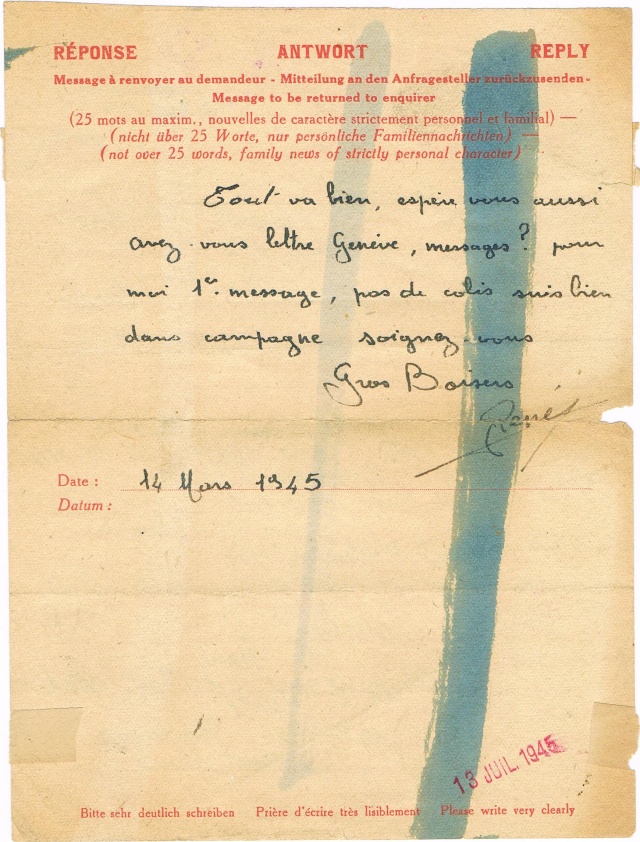 RÉPONSE ANTWORT REPLY
Message à renvoyer au demandeur - Mitteilung an den Anfragesteller zurückzusenden -
Message to be returned to enquirer
(25 mots au maxim., nouvelles de caractère strictement personnel et familial) —
(nicht über 25 Worte, nur persönliche Familiennachrichten) —
(not over 25 words, family news of strictly personal character)
Tout va bien, espère vous aussi
avez-vous lettre Genève, messages? pour
moi 1er message, pas de colis suis bien
dans campagne soignez-vous
Gros Baisers
Date : 14 Mars 1945
Datum :
13 JUIL. 1945
Bitte sehr deutlich schreiben Prière d'écrire très lisiblement Please write very clearly